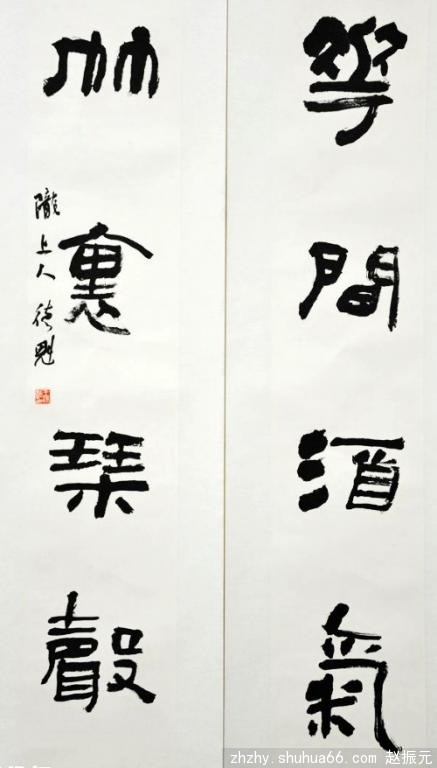 華間酒氣
竹裏琴聲
隴上人
zhzhy.shuhua66.com 赵振元